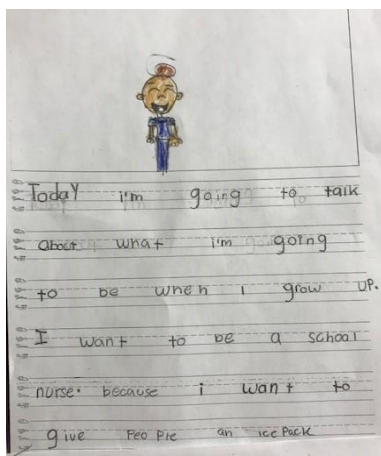 Today i'm going to talk
about what i'm going
to be when i grow UP.
I want to be a school
nurse. because i want to
give PeoPle an icePack